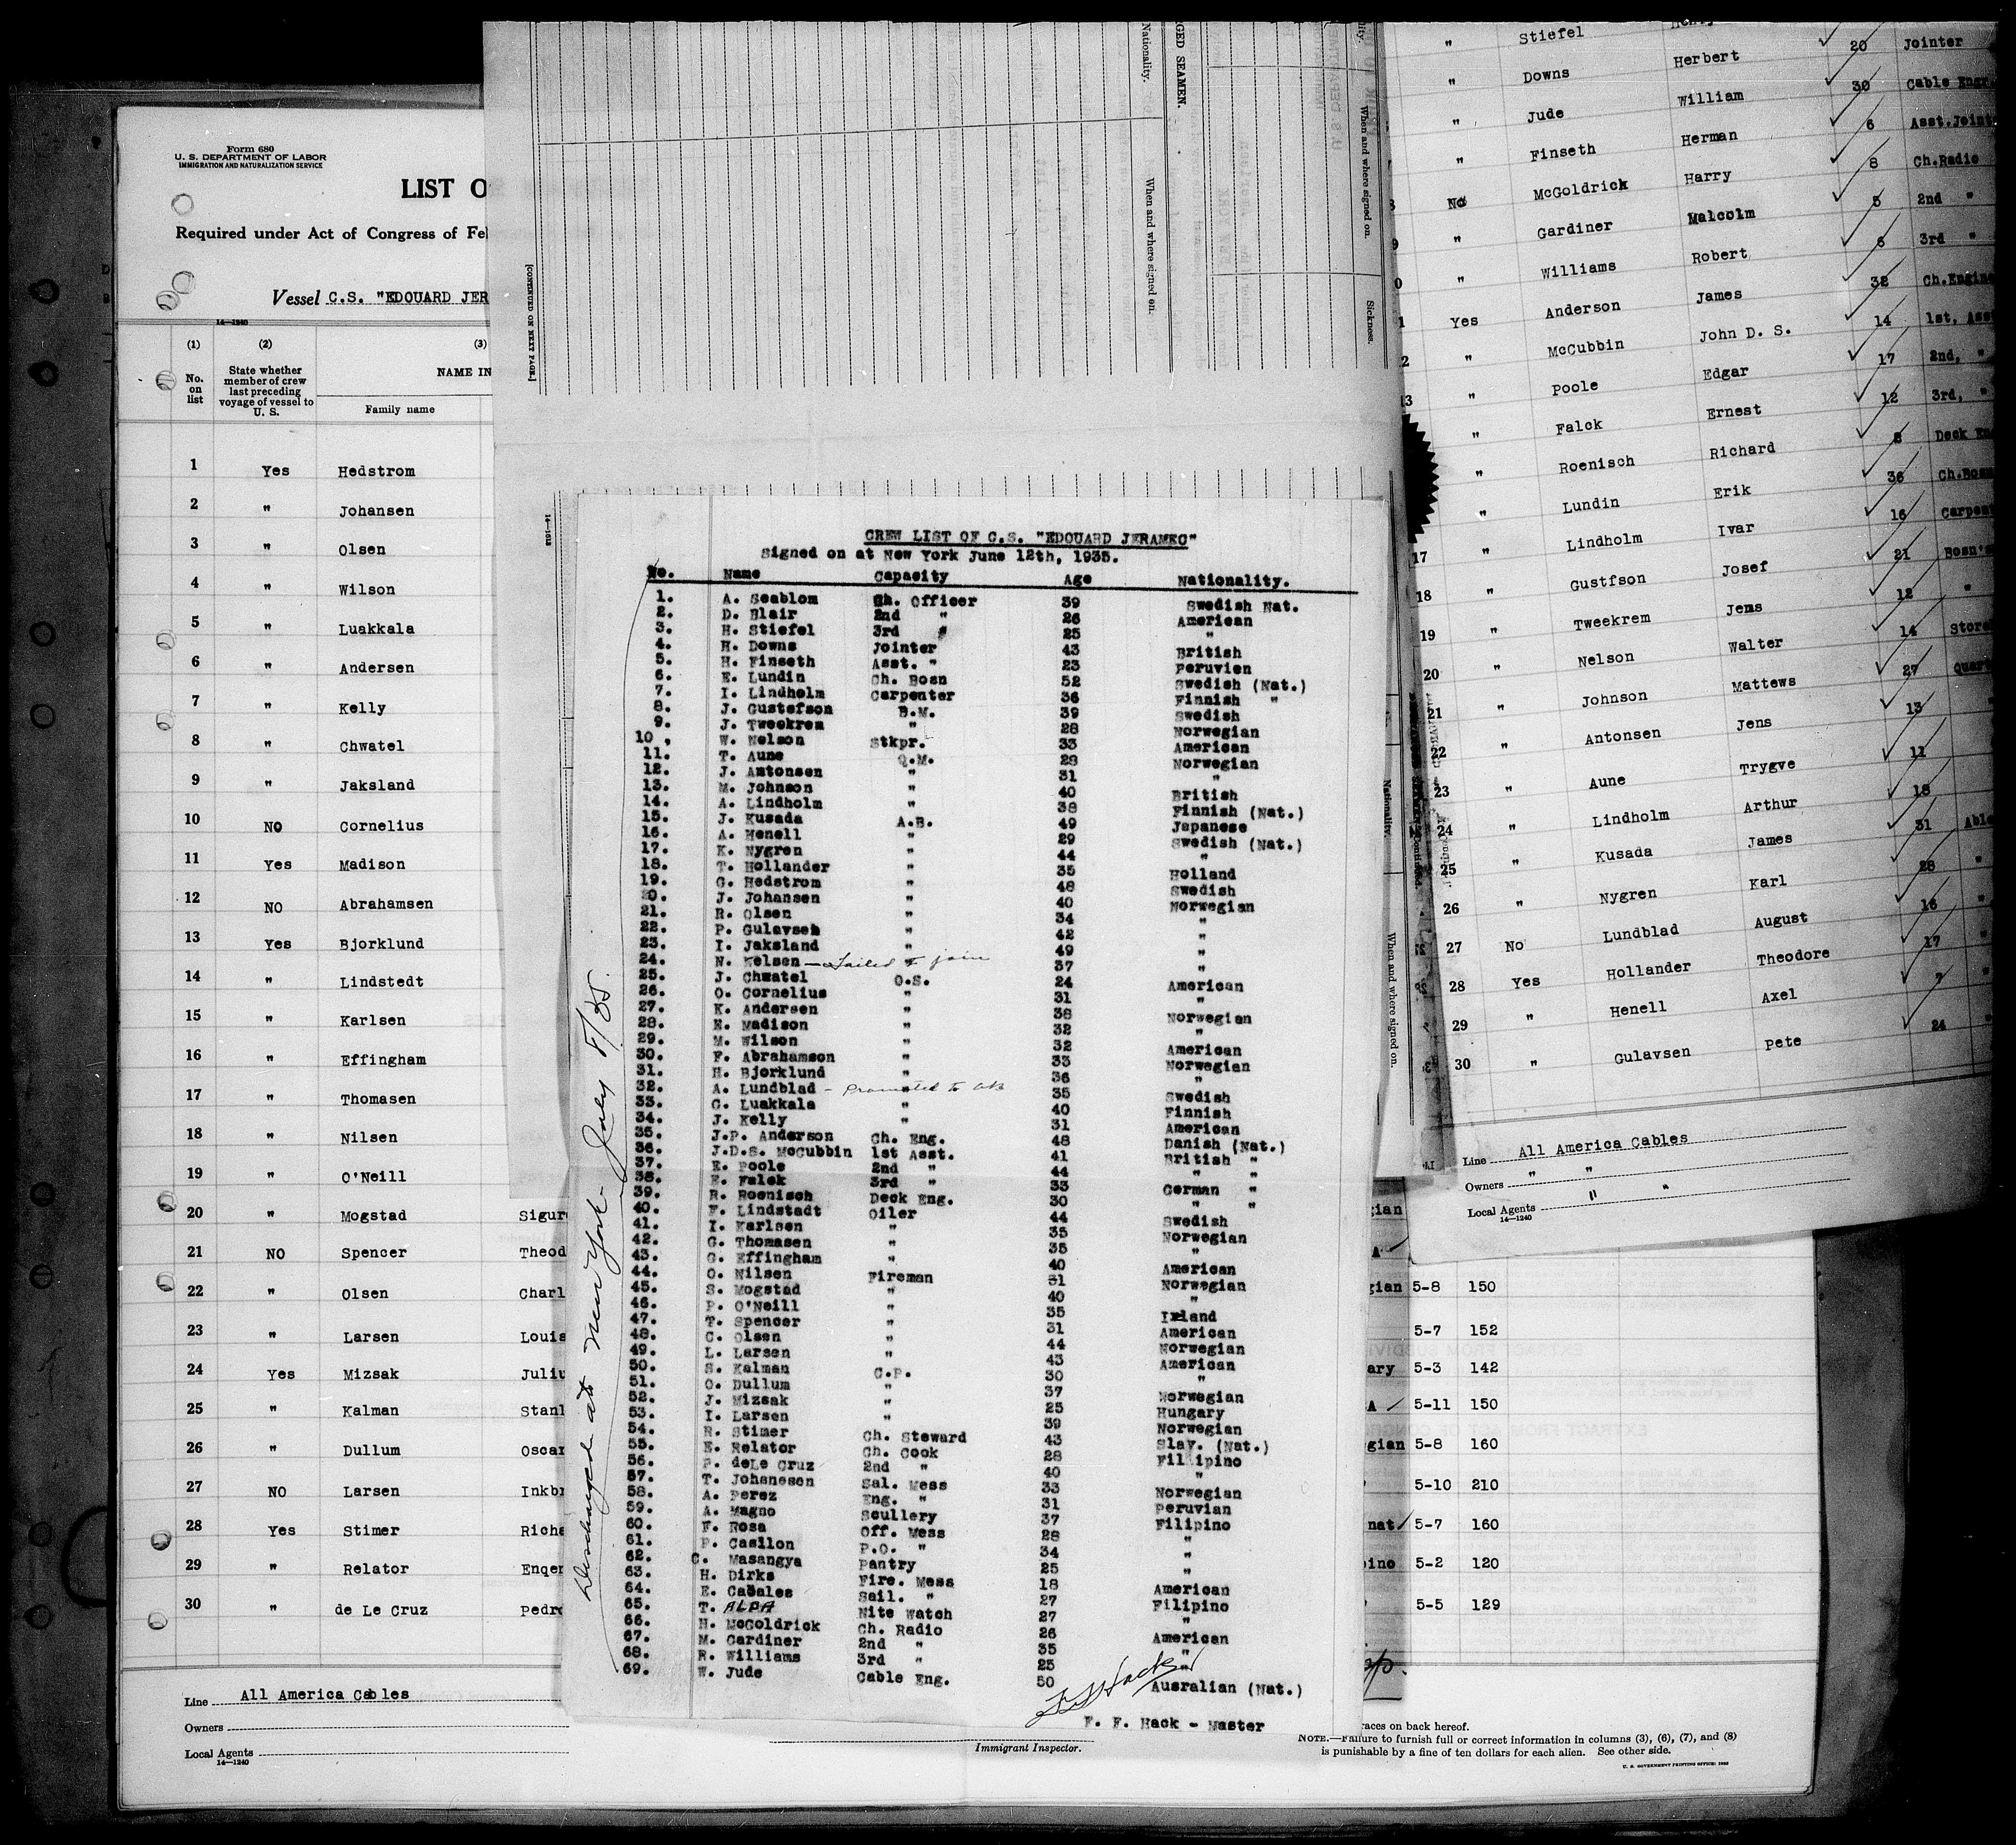 Form 680
U. S. DEPARTMENT OF LABOR
IMMIGRATION AND NATURALIZATION SERVICE
LIST O
Required under Act of Congress of Fe
Vessel C.S. "EDOUARD JER
14—1240
(1) (2) (3)
No. on list
State whether member of crew last preceding voyage of vessel to U. S.
NAME IN
Family name
1 Yes Hedstrom
2 " Johansen
3 " Olsen
4 " Wilson
5 " Luakkala
6 " Andersen
7 " Kelly
8 " Chwatel
9 " Jaksland
10 NO Cornelius
11 Yes Madison
12 NO Abrahamsen
13 Yes Bjorklund
14 " Lindstedt
15 " Karlsen
16 " Effingham
17 " Thomasen
18 " Nilsen
19 " O'Neill
20 " Mogstad Sigur
21 NO Spencer Theod
22 " Olsen Charl
23 " Larsen Louis
24 Yes Mizsak Juliu
25 " Kalman Stanl
26 " Dullum Oscar
27 NO Larsen Inkb
28 Yes Stimer Richa
29 " Relator Enqer
30 " de Le Cruz Pedro
Line All America Cables
Owners
Local Agents
14—1240
[CONTINUED ON NEXT PAGE.]
Nationality.
When and where signed on.
GED SEAMEN.
When and where signed on.
Sickness.
CREW LIST OF C.S. "EDOUARD JERAMEC"
Signed on at New York June 12th, 1935.
No. Name Capacity Age Nationality.
1. A. Seablom Ch. Officer 39 Swedish Nat.
2. D. Blair 2nd " 26 American
3. H. Stiefel 3rd " 25 "
4. H. Downs Jointer 43 British
5. H. Finseth Asst. " 23 Peruvien
6. E. Lundin Ch. Bosn 52 Swedish (Nat.)
7. I. Lindholm Carpenter 36 Finnish "
8. J. Gustefson B.M. 39 Swedish
9. J. Tweekrem " 28 Norwegian
10, W. Nelson Stkpr. 33 American
11. T. Aune Q.M. 28 Norwegian
12. J. Antonsen " 31 "
13. M. Johnson " 40 British
14. A. Lindholm " 38 Finnish (Nat.)
15. J. Kusada A.B. 49 Japanese
16. A. Henell " 29 Swedish (Nat.)
17. K. Nygren " 44 "
18. T. Hollander " 35 Holland
19. G. Hedstrom " 48 Swedish
20. J. Johansen " 40 Norwegian
21. R. Olsen " 34 "
22. P. Gulavsen " 42 "
23. I. Jaksland " 49 "
24. N. Nelsen — Failed to join 37 "
25. J. Chwatel O.S. 24 American
26. O. Cornelius " 31 "
27. K. Andersen " 38 Norwegian
28. E. Madison " 32 "
29. M. Wilson " 32 American
30. F. Abrahamson " 33 Norwegian
31. H. Bjorklund " 36 "
32. A. Lundblad - Promoted to AB " 35 Swedish
33. G. Luakkala " 40 Finnish
34. J. Kelly " 31 American
35. J.P. Anderson Ch. Eng. 48 Danish (Nat.)
36. J.D.S. McCubbin 1st Asst. 41 British "
37. E. Poole 2nd " 44 " "
38. E. Falck 3rd " 33 German "
39. R. Roenisch Deck Eng. 30 " "
40. F. Lindstadt Oiler 44 Swedish
41. I. Karlsen " 35 Norwegian
42. G. Thomasen " 35 "
43. G. Effingham " 40 American
44. O. Nilsen Fireman 31 Norwegian
45. S. Mogstad " 40 "
46. P. O'Neill " 35 Ireland
47. T. Spencer " 31 American
48. C. Olsen " 44 Norwegian
49. L. Larsen " 43 American
50. S. Kalman C.P. 30 "
51. O. Dullum " 37 Norwegian
52. J. Mizsak " 25 Hungary
53. I. Larsen " 39 Norwegian
54. R. Stimer Ch. Steward 43 Slav. (Nat.)
55. E. Relator Ch. Cook 28 Filipino
56. P. deLe Cruz 2nd " 40 "
57. T. Johanesen Sal. Mess 33 Norwegian
58. A. Perez Eng. " 31 Peruvian
59. A. Magno Scullery 37 Filipino
60. F. Rosa Off. Mess 28 "
61. P. Casilon P.O. " 34 "
62. C. Masangya Pantry 25 "
63. H. Dirks Fire. Mess 18 American
64. E. Cabales Sail. " 27 Filipino
65. T. ALPA Nite Watch 27 "
66. H. McGoldrick Ch. Radio 26 American
67. M. Gardiner 2nd " 35 "
68. R. Williams 3rd " 25 "
69. W. Jude Cable Eng. 50 Ausralian (Nat.)
F F Hack
F. F. Hack - Master
Discharged at New York - July 8/35.
" Stiefel Henry 20 Jointer
" Downs Herbert 30 Cable Engr
" Jude William 6 Asst.Joint
" Finseth Herman 8 Ch.Radio
No McGoldrick Harry 5 2nd "
9 " Gardiner Malcolm 6 3rd "
0 " Williams Robert 32 Ch.Engine
1 Yes Anderson James 14 1st, Asst
2 " McCubbin John D. S. 17 2nd, "
13 " Poole Edgar 12 3rd, "
" Falck Ernest 8 Deck En
" Roenisch Richard 36 Ch.Bosn
" Lundin Erik 16 Carpent
17 " Lindholm Ivar 21 Bosn's
18 " Gustfson Josef 12 "
19 " Tweekrem Jems 14 Store
20 " Nelson Walter 27 Quar
21 " Johnson Mattews 13
22 " Antonsen Jens 11
23 " Aune Trygve 18
24 " Lindholm Arthur 31 Able
25 " Kusada James 28 "
26 " Nygren Karl 16 "
27 No Lundblad August 17 "
28 Yes Hollander Theodore 7 "
29 " Henell Axel 24 "
30 " Gulavsen Pete
Line All America Cables
Owners " "
Local Agents " "
14—1240
gian
A
gian 5-8 150
5-7 152
ary 5-3 142
A 5-11 150
gian 5-8 160
5-10 210
nat 5-7 160
ino 5-2 120
5-5 129
Immigrant Inspector.
races on back hereof.
NOTE.—Failure to furnish full or correct information in columns (3), (6), (7), and (8)
is punishable by a fine of ten dollars for each alien. See other side.
U. S. GOVERNMENT PRINTING OFFICE: